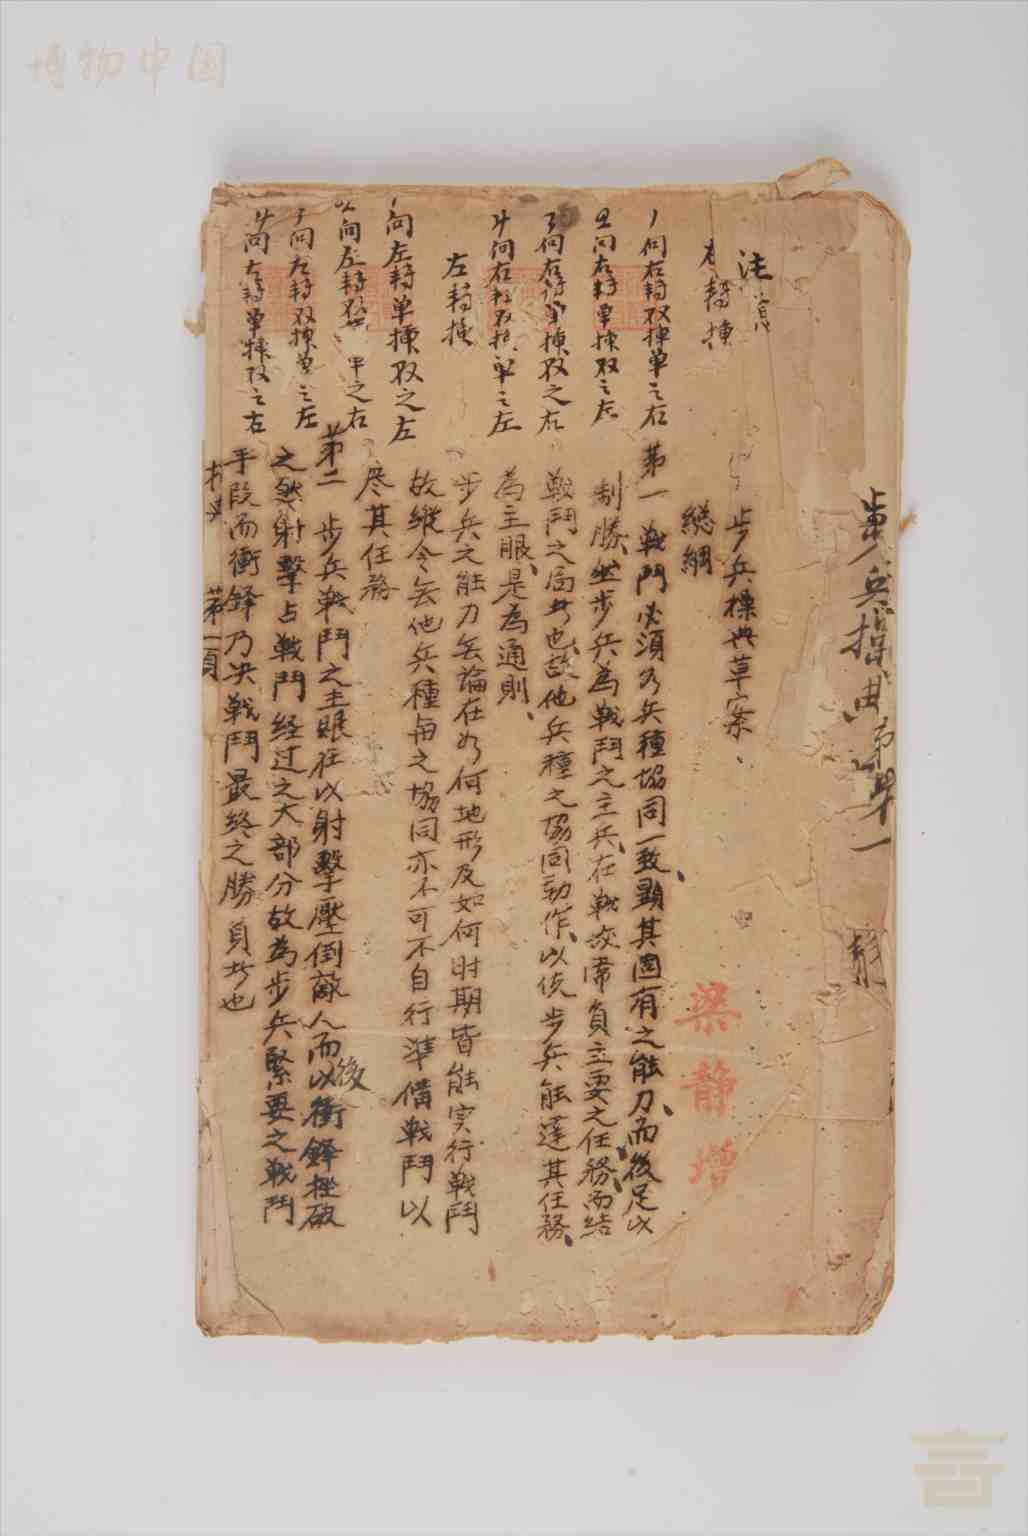 博物中国
步兵操典第一
靜
注意
右轉揀
1 向右轉双揀单之右
2 向右轉单揀双之左
3 向右轉单揀双之右
4 向右轉双揀单之左
左轉揀
向左轉单揀双之左
向左轉双揀单之右
向左轉双揀单之左
向左轉单揀双之右
步兵操典草案
総綱
第一 戰鬥必須各兵種協同一致、顕其固有之能力、而後足以
制勝、然步兵為戰鬥之主兵、在戰役常負主要之任務、而結
戰鬥之局者也、故他兵種之協同動作、以使步兵能達其任務、
為主眼、是為通則、
步兵之能力無論在如何地形及如何时期皆能実行戰鬥
故縱令無他兵種與之協同亦不可不自行準備戰鬥以
尽其任務
第二 步兵戰鬥之主眼在以射擊壓倒敵人而後以衝鋒挫敵
之然射擊占戰鬥経过之大部分故為步兵緊要之戰鬥
手段而衝鋒乃決戰鬥最終之勝負者也
第一頁
梁靜增